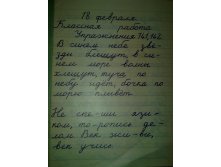 18 февраля.
Классная работа
Упражнения 141, 142
В синем небе звё-
зды блещут, в си-
нем море волны
хлещут, туча по
небу идёт, бочка по
морю плывёт.
Не спе-ши язы-
ком, то-ропись де-
лом. Век жи-ви,
век учись.